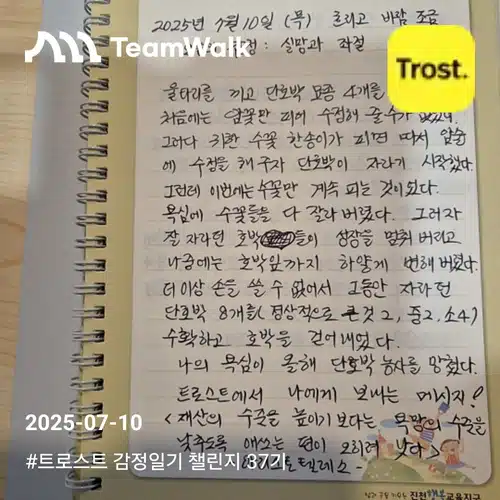 2025년 7월 10일 (목) 흐리고 바람 조금
TeamWalk
Trost.
: 실망과 좌절
울타리를 끼고 단호박 모종 4개를
처음에는 암꽃만 피어 수정해 줄 수가 없었다.
그러다 귀한 수꽃 한송이가 피면 따서 암술
에 수정을 해 주자 단호박이 자라기 시작했다.
그런데 이번에는 수꽃만 계속 피는 것이었다.
욕심에 수꽃들을 다 잘라 버렸다. 그러자
잘 자라던 호박들이 성장을 멈춰 버리고
나중에는 호박잎까지 하얗게 변해 버렸다.
더 이상 손을 쓸 수 없어서 그동안 자라던
단호박 8개를 (정상적으로 큰것 2, 중2, 소4)
수확하고 호박을 걷어내었다.
나의 욕심이 올해 단호박 농사를 망쳤다.
트로스트에서 나에게 보내는 메시지!
<재산의 수준을 높이기 보다는 욕망의 수준을
낮추도록 애쓰는 편이 오히려 낫다>
아리스토텔레스 -
2025-07-10
#트로스트 감정일기 챌린지 37기
진천행복교육지구